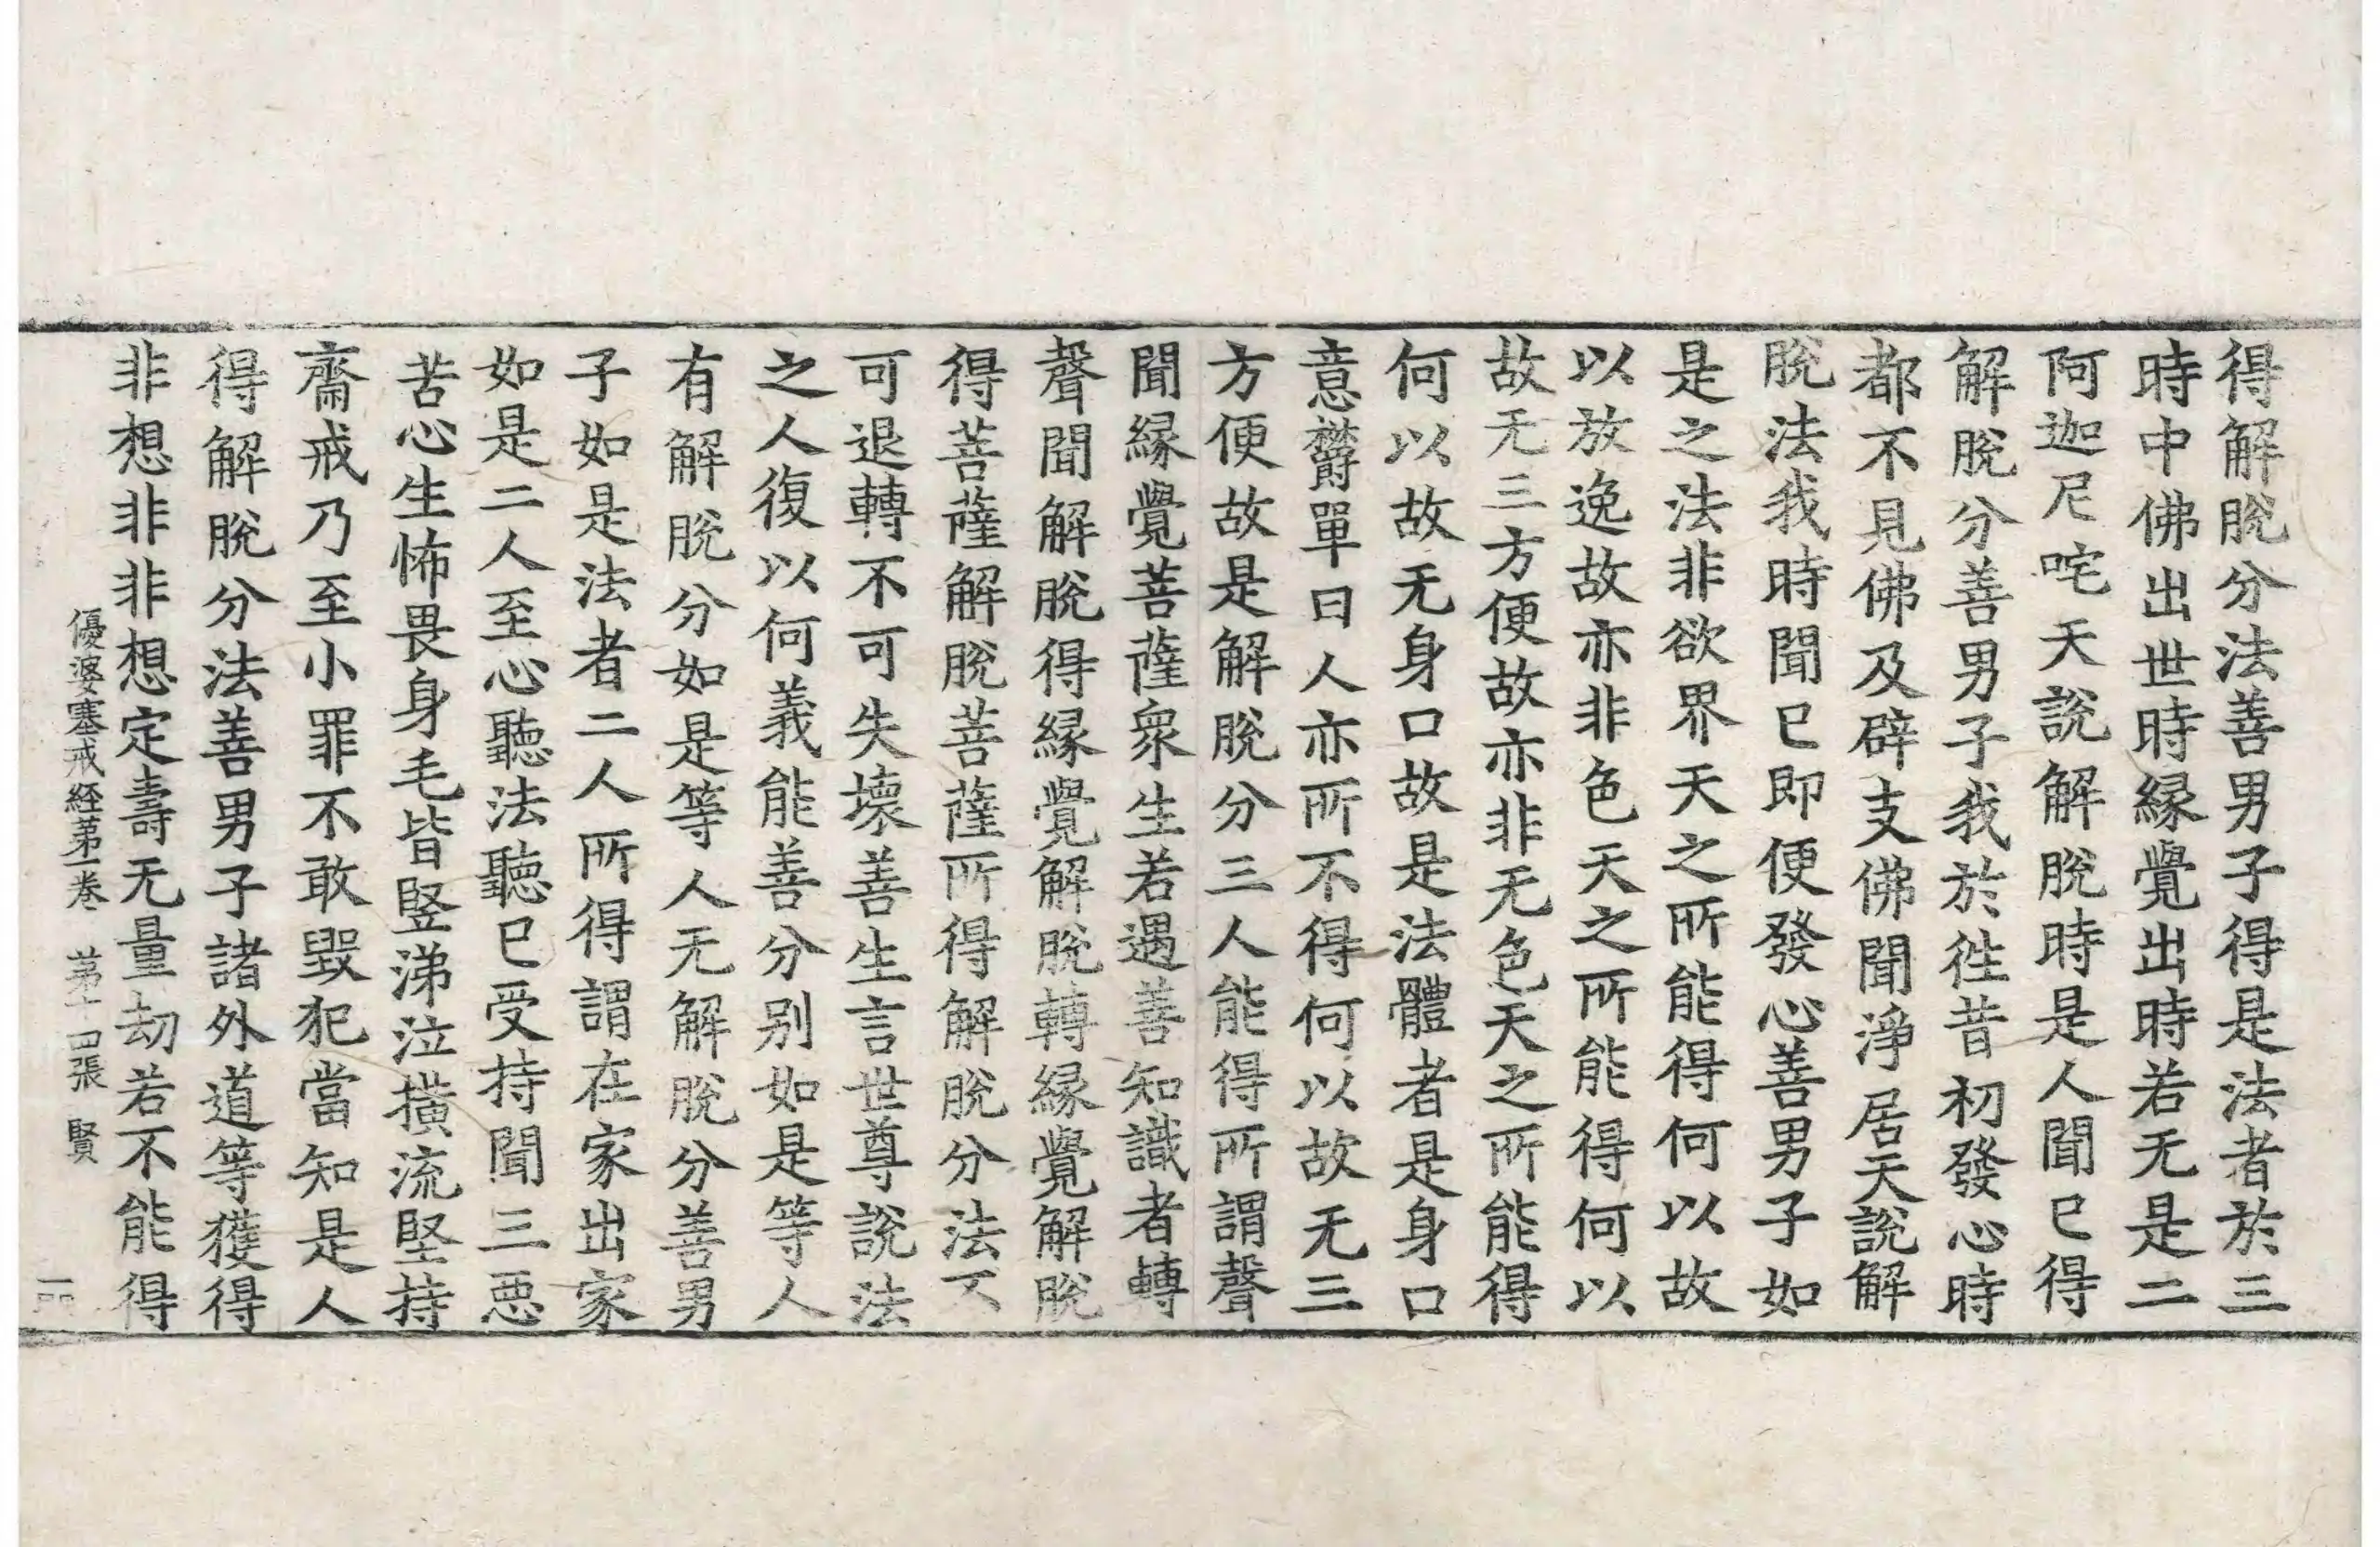 得解脫分法善男子得是法者於三
時中佛出世時緣覺出時若无是二
阿迦尼咤天說解脫時是人聞已得
解脫分善男子我於徃昔初發心時
都不見佛及辟支佛聞淨居天說解
脫法我時聞已即便發心善男子如
是之法非欲界天之所能得何以故
以放逸故亦非色天之所能得何以
故无三方便故亦非无色天之所能得
何以故无身口故是法體者是身口
意欝單曰人亦所不得何以故无三
方便故是解脫分三人能得所謂聲
聞緣覺菩薩衆生若遇善知識者轉
聲聞解脫得緣覺解脫轉緣覺解脫
得菩薩解脫菩薩所得解脫分法不
可退轉不可失壞善生言世尊說法
之人復以何義能善分別如是等人
有解脫分如是等人无解脫分善男
子如是法者二人所得謂在家出家
如是二人至心聽法聽已受持聞三惡
苦心生怖畏身毛皆竪涕泣撗流堅持
齋戒乃至小罪不敢毀犯當知是人
得解脫分法善男子諸外道等獲得
非想非非想定壽无量劫若不能得
優婆塞戒經苐一卷 苐十四張 賢